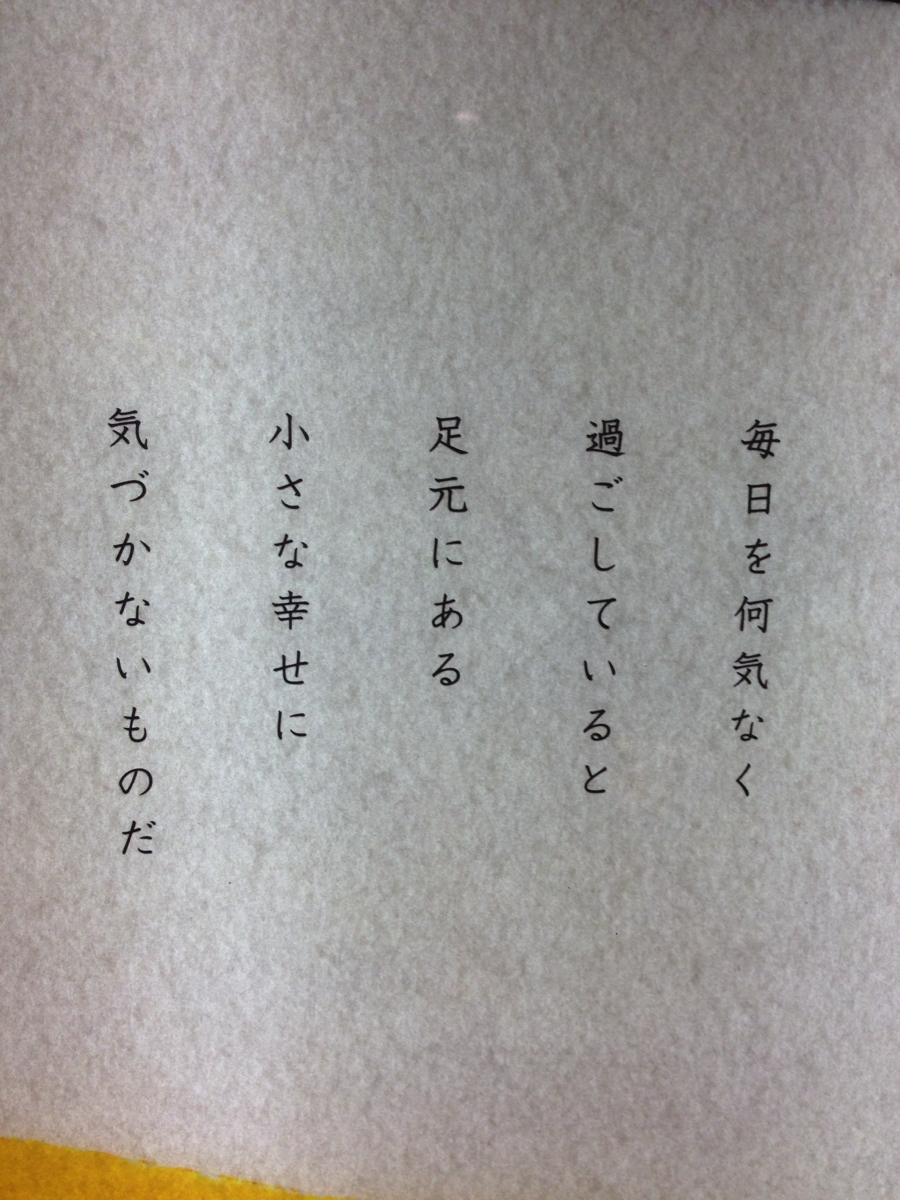 毎日を何気なく
過ごしていると
足元にある
小さな幸せに
気づかないものだ